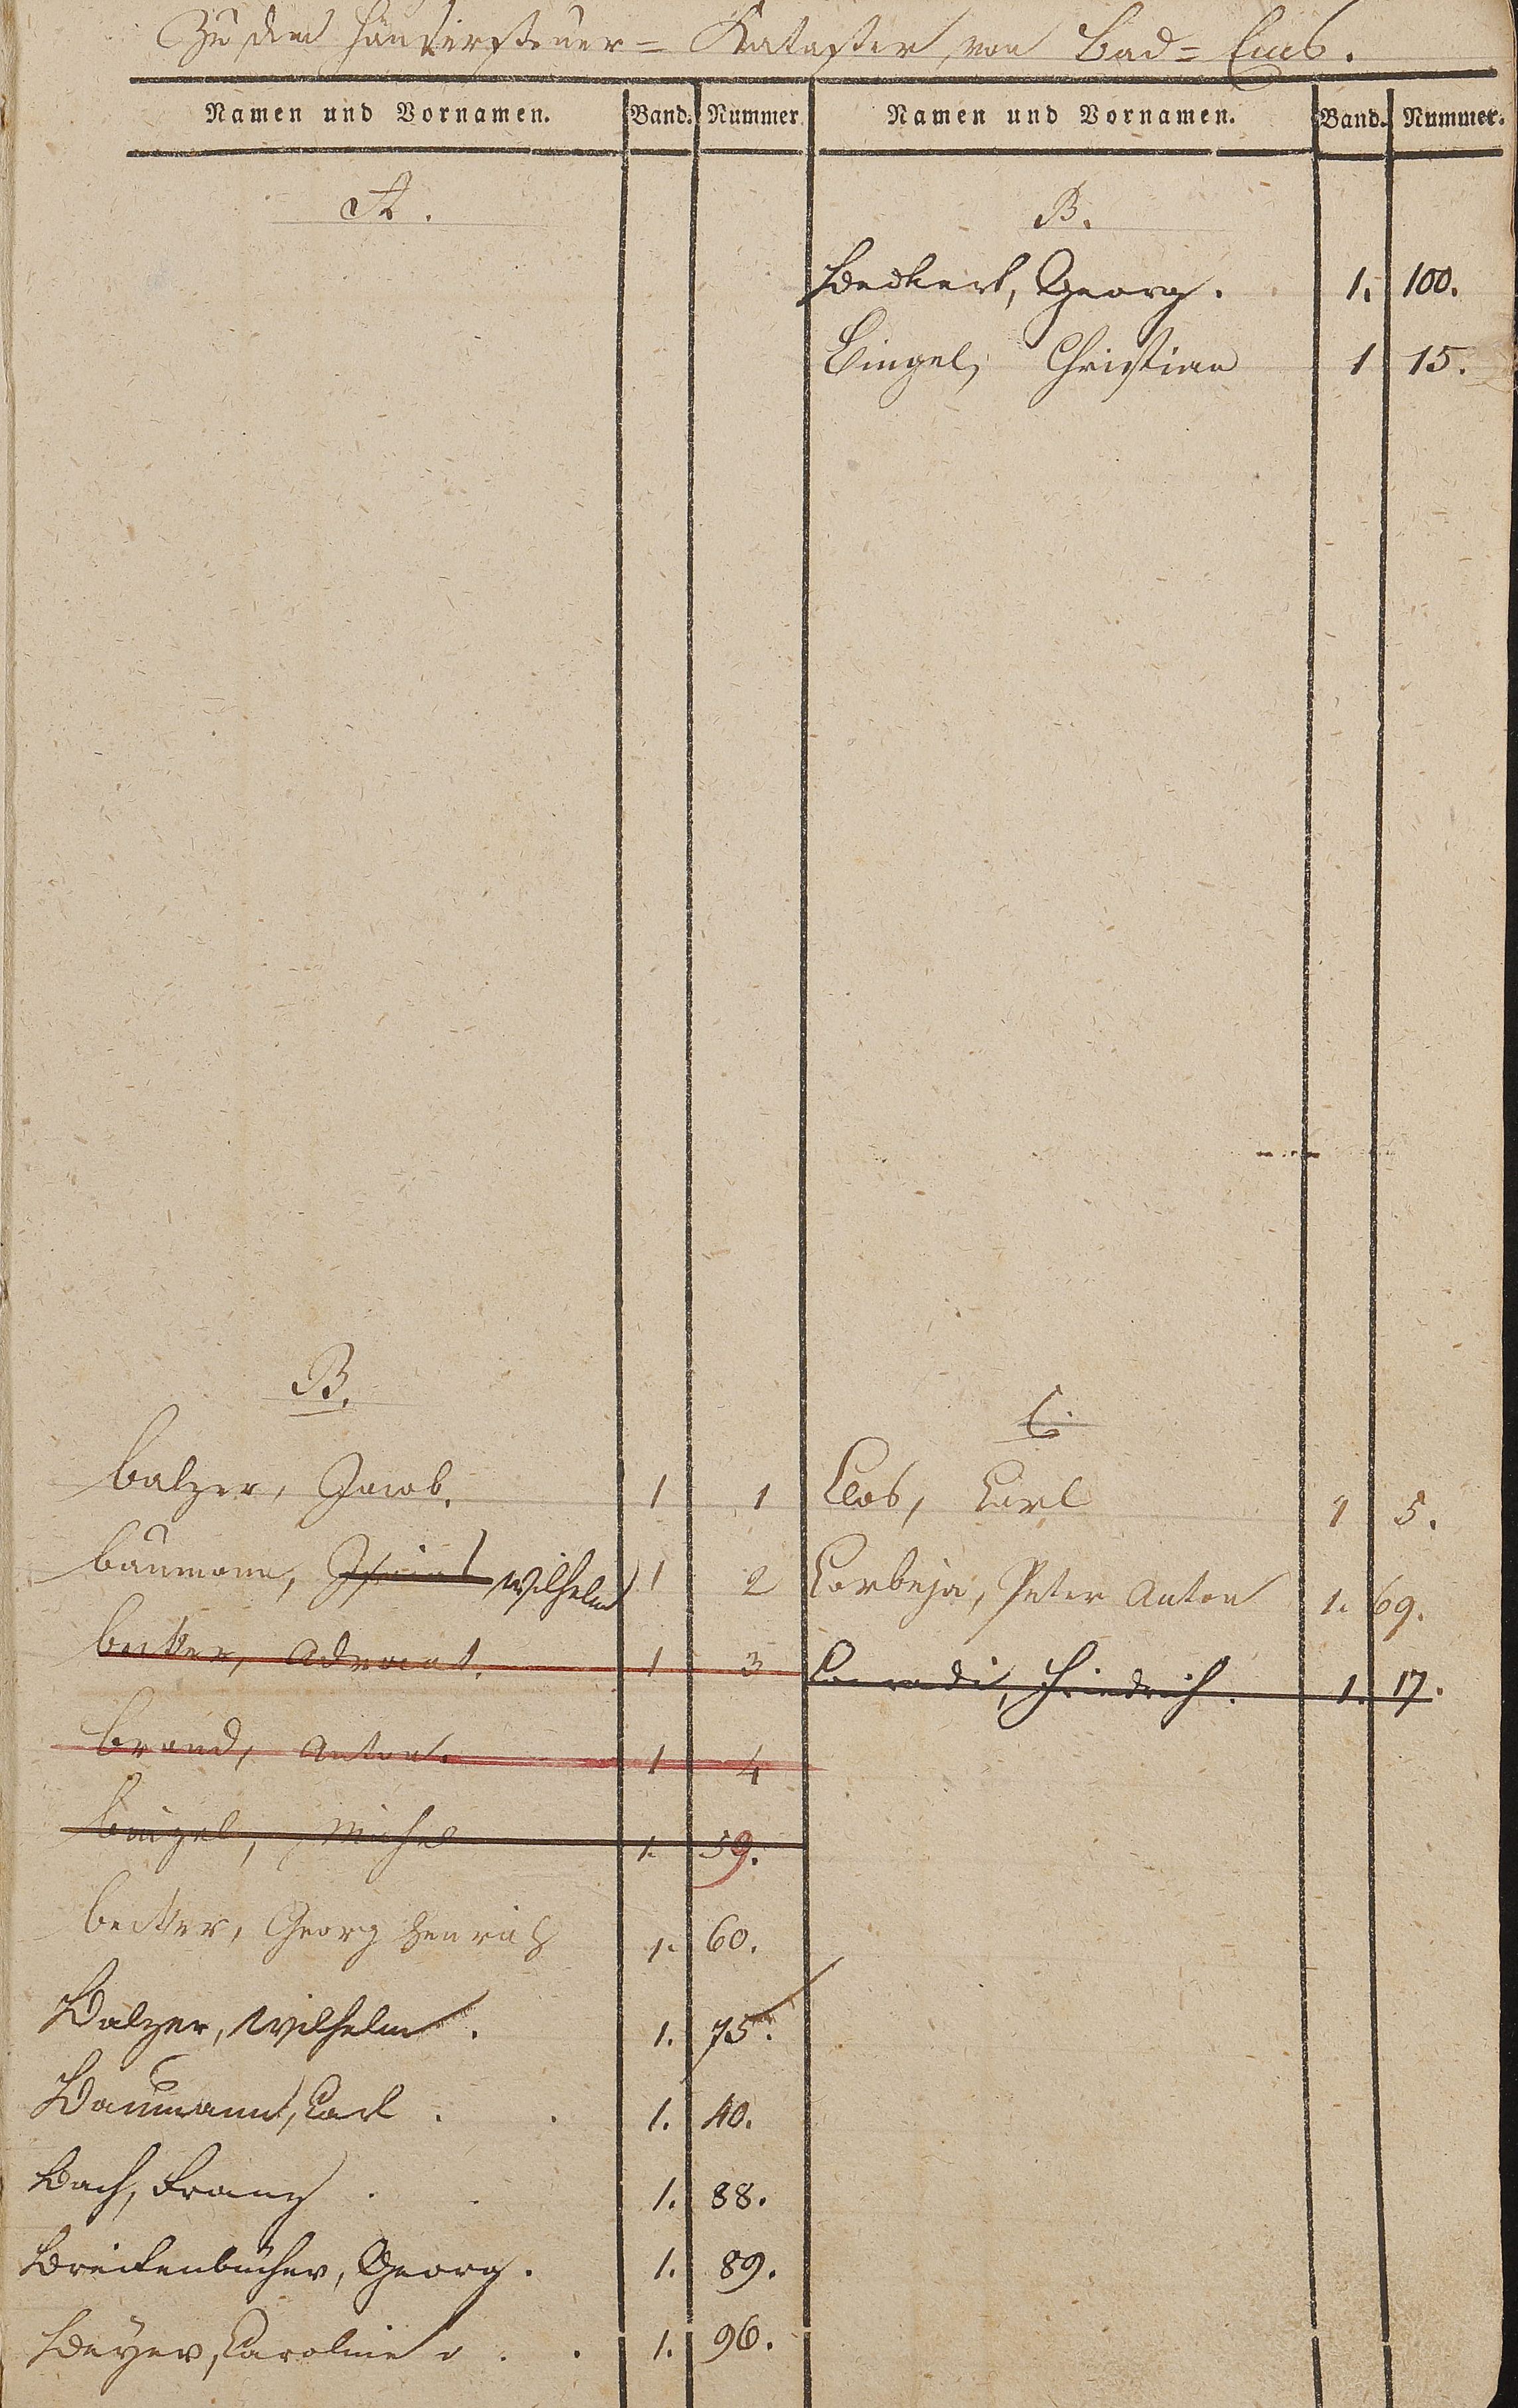 Zu dem Häusersteuer= Kataster von Bad=Ems.
Namen und Vornamen. Band. Nummer. Namen und Vornamen. Band. Nummer.
A.
B.
Balzer, Jacob. 1 1
Baumann, Wilhelm 1 2
Becker, Advocat. 1 3
Brand, Anton. 1 4
Bingel, Michel 1. 59.
Becker, Georg Henrich 1. 60.
Balzer, Wilhelm. 1. 75.
Baumann, Carl . . 1. 40.
Bach, Franz . . 1. 88.
Breidenbücher, Georg. 1. 89.
Beyer, Caroline . . 1. 96.
B.
Beckert, Georg. 1. 100.
Bingel, Christian 1 15.
C.
Clos, Carl 1 5.
Corbeja, Peter Anton 1. 69.
Conradi, Friedrich. 1. 17.